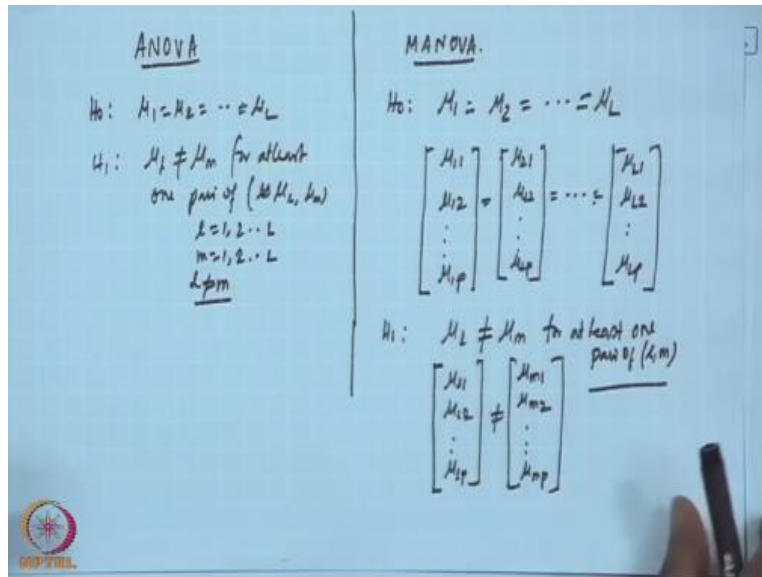 ANOVA
H₀: μ₁ = μ₂ = ··· = μ_L
H₁: μ_l ≠ μ_m for atleast
one pair of (μ_l, μ_m)
l = 1, 2 ·· L
m = 1, 2 ·· L
l ≠ m
MANOVA.
H₀: μ₁ = μ₂ = ··· = μ_L
[μ₁₁ μ₁₂ ⋮ μ₁p] = [μ₂₁ μ₂₂ ⋮ μ₂p] = ··· = [μ_L1 μ_L2 ⋮ μ_Lp]
H₁: μ_l ≠ μ_m for at least one
pair of (l, m)
[μ_l1 μ_l2 ⋮ μ_lp] ≠ [μ_m1 μ_m2 ⋮ μ_mp]
NPTEL